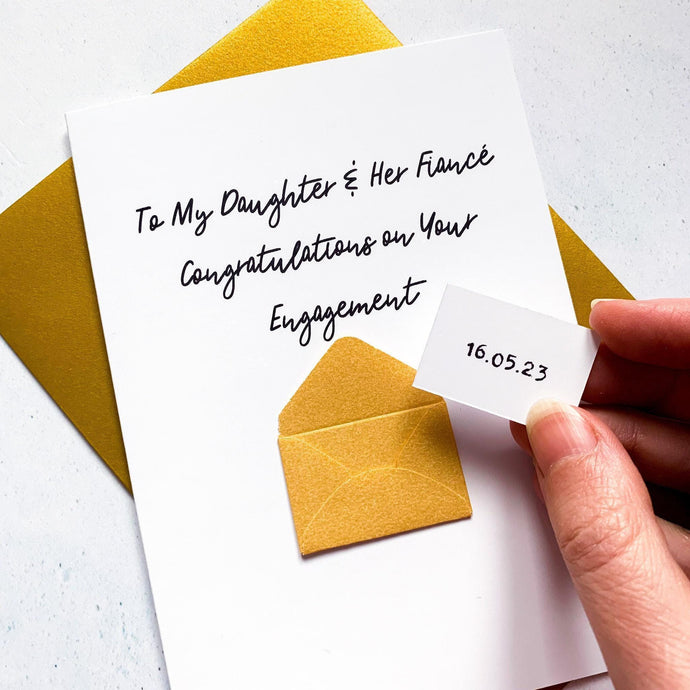 To My Daughter & Her Fiancé
Congratulations on Your
Engagement
16.05.23